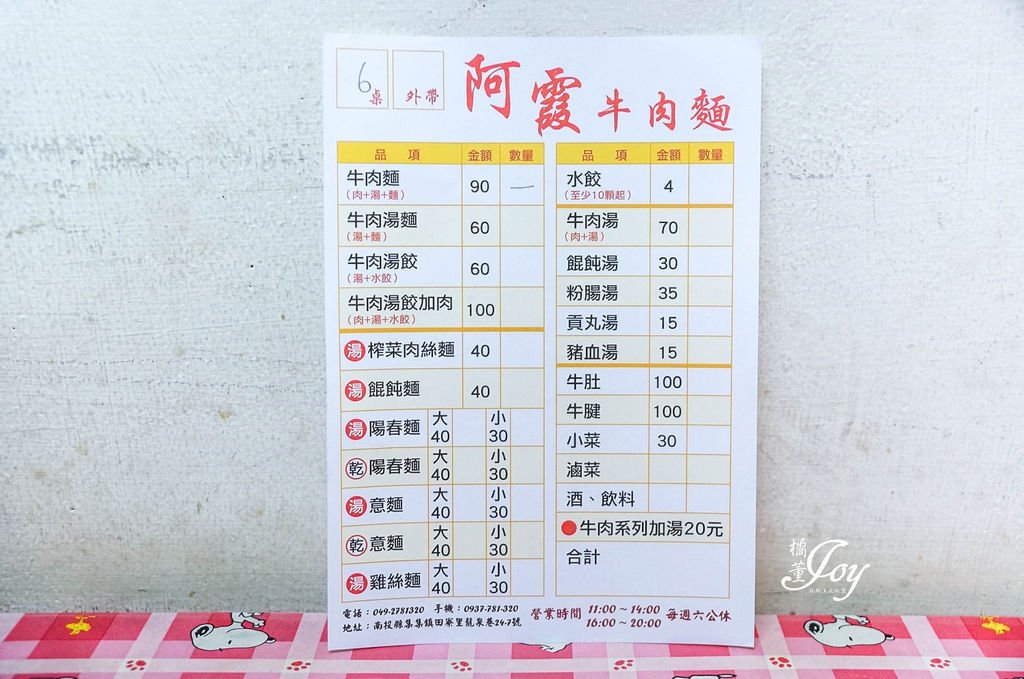 6桌 外帶
阿霞牛肉麵
品項 金額 數量
牛肉麵 90 一
(肉+湯+麵)
牛肉湯麵 60
(湯+麵)
牛肉湯餃 60
(湯+水餃)
牛肉湯餃加肉 100
(肉+湯+水餃)
湯 榨菜肉絲麵 40
湯 餛飩麵 40
湯 陽春麵 大40 小30
乾 陽春麵 大40 小30
湯 意麵 大40 小30
乾 意麵 大40 小30
湯 雞絲麵 大40 小30
品項 金額 數量
水餃 4
(至少10顆起)
牛肉湯 70
(肉+湯)
餛飩湯 30
粉腸湯 35
貢丸湯 15
豬血湯 15
牛肚 100
牛腱 100
小菜 30
滷菜
酒、飲料
●牛肉系列加湯20元
合計
電話：049-2781320 手機：0937-781-320
地址：南投縣集集鎮田寮里龍泉巷24-7號
營業時間 11:00～14:00 每週六公休
16:00～20:00
橘董Joy